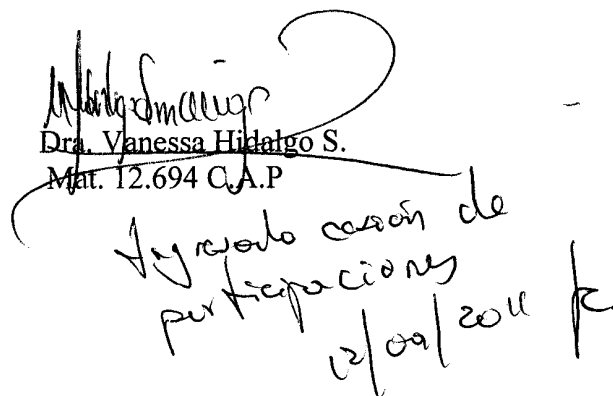 Dra. Vanessa Hidalgo S.
Mat. 12.694 C.A.P
Ingresado cesión de
participaciones
12/09/2011